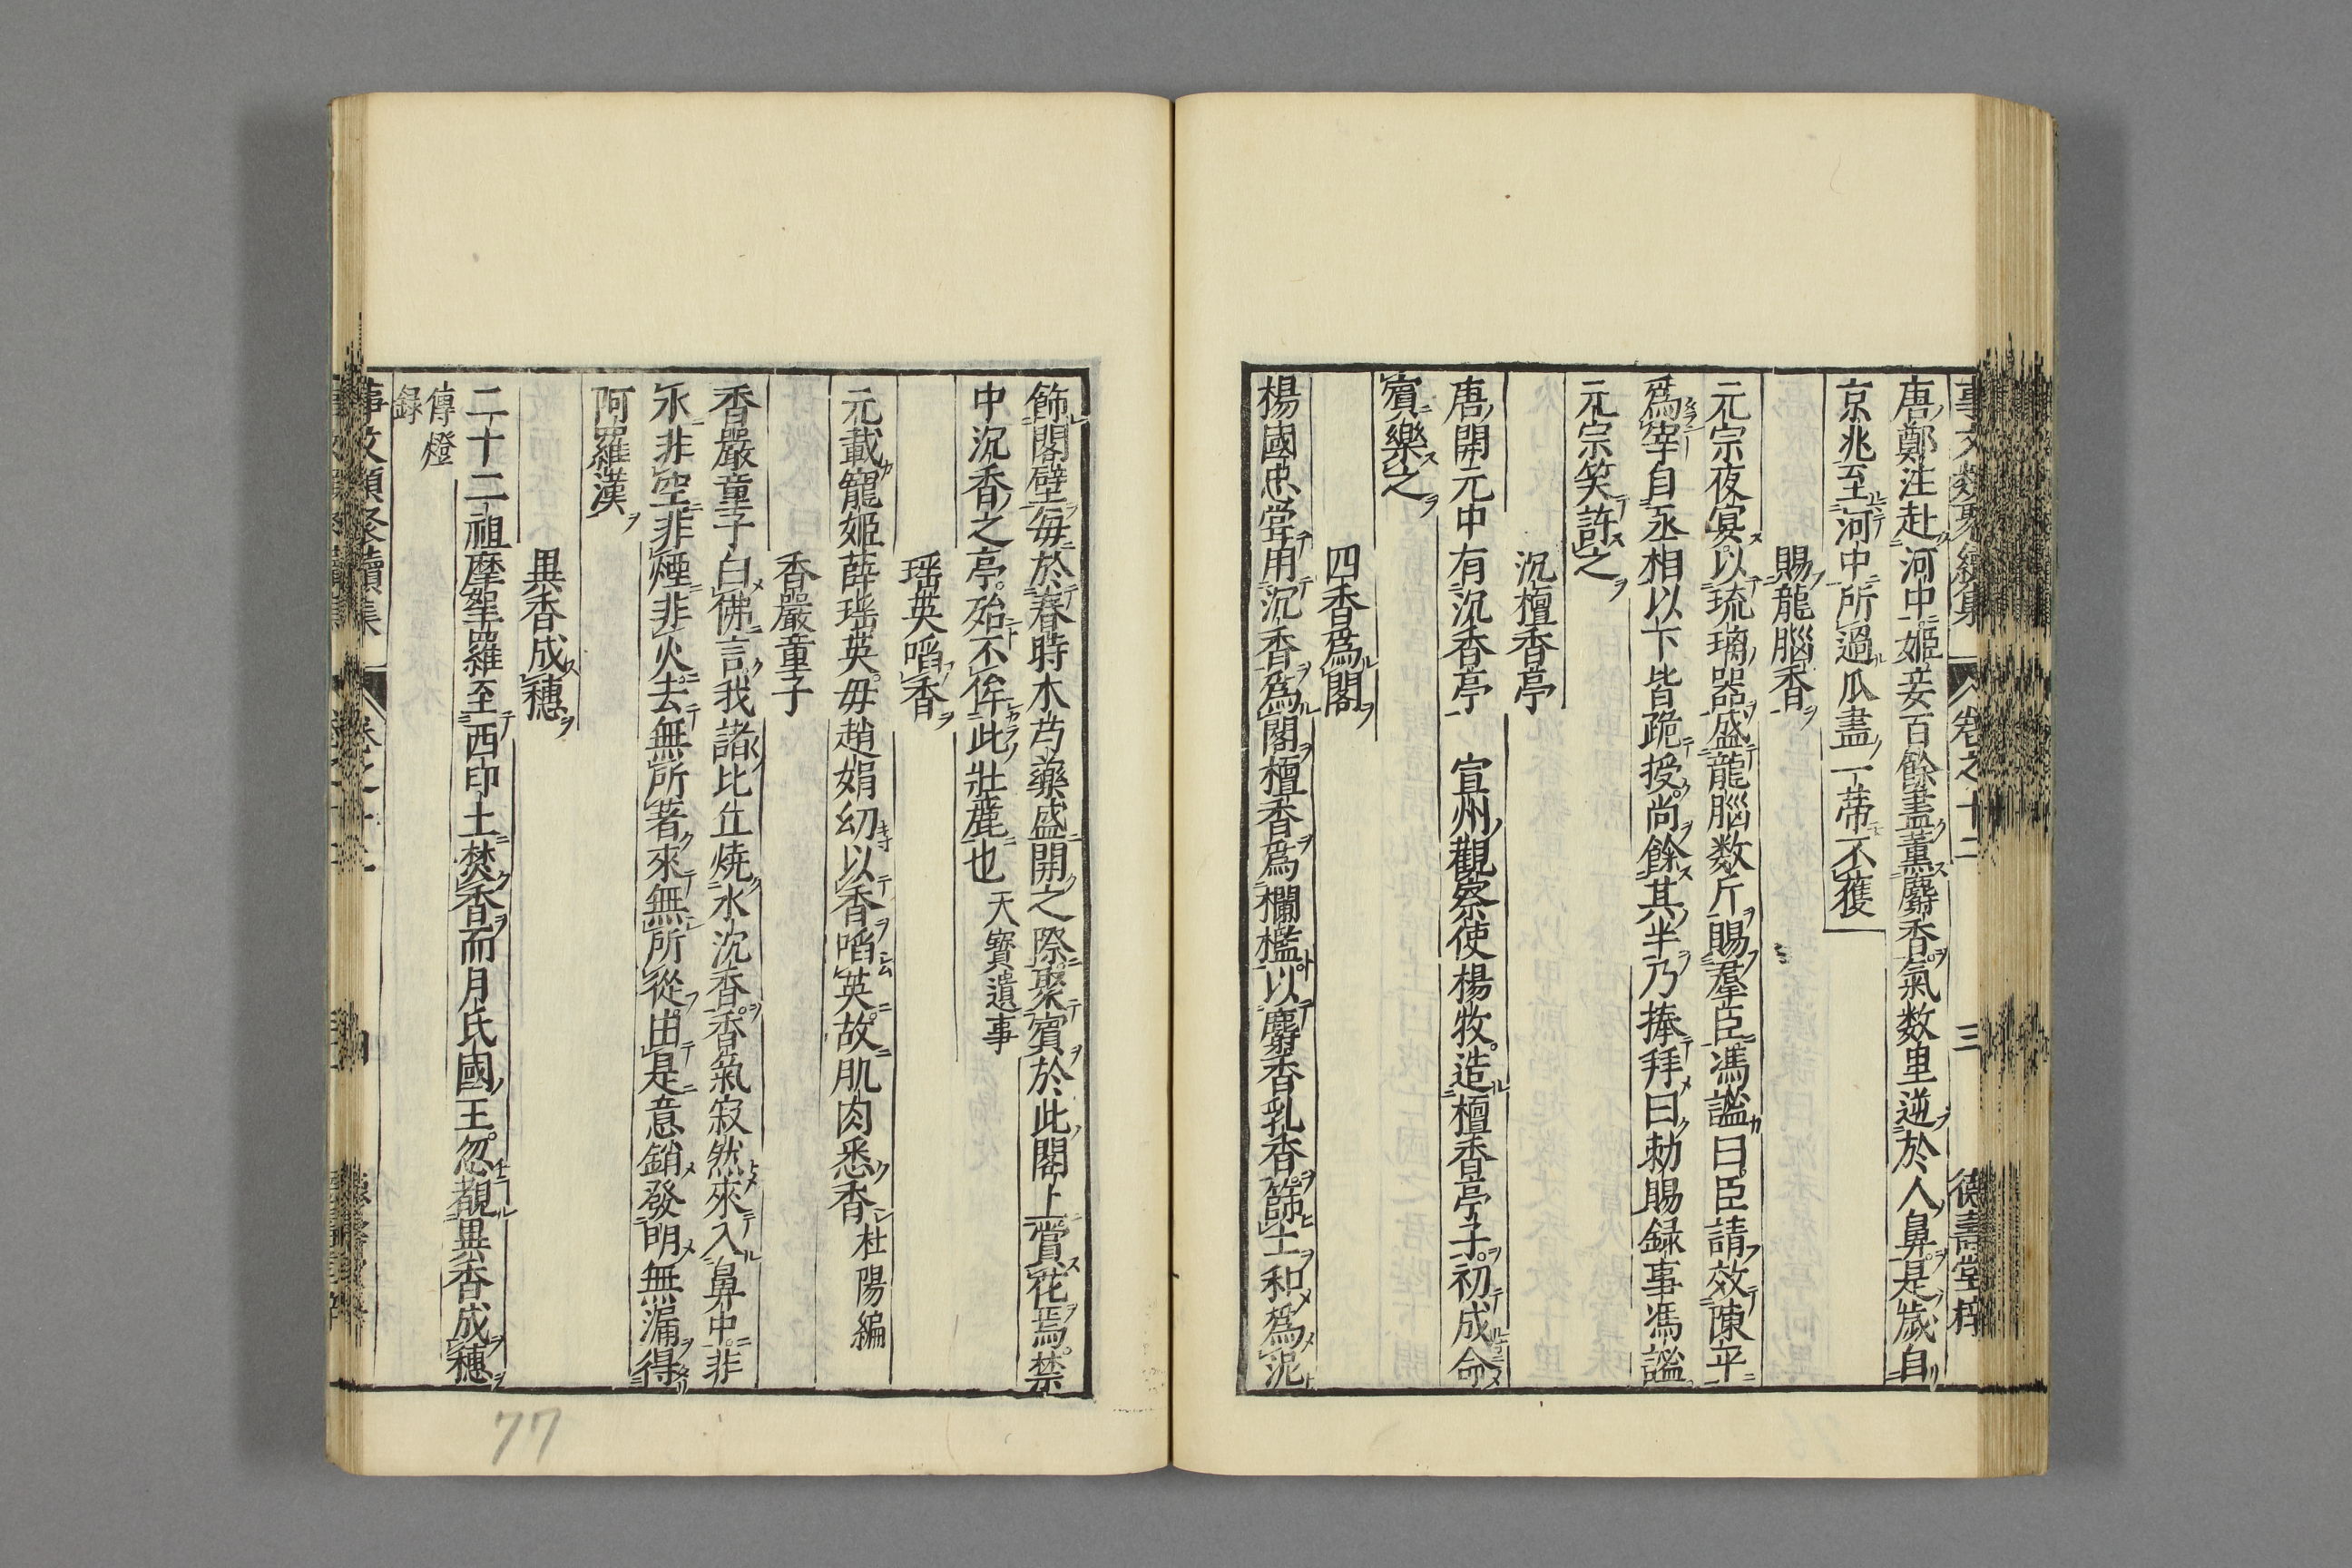 事文類聚續集 卷之十二 三 德壽堂梓
唐鄭注赴河中姬妾百餘盡薰麝香氣数里逆於人鼻是歲自
京兆至河中所過瓜盡一蒂不獲
賜龍腦香
元宗夜宴以琉璃器盛龍腦数斤賜羣臣馮謐曰臣請效陳平
爲宰自丞相以下皆跪授尚餘其半乃捧拜曰勅賜録事馮謐
元宗笑許之
沉檀香亭
唐開元中有沉香亭 宣州觀察使楊牧造檀香亭子初成命
賓樂之
四香爲閣
楊國忠嘗用沉香爲閣檀香爲欄檻以麝香乳香篩土和爲泥
飾閣壁每於春時木芍藥盛開之際聚賓於此閣上賞花焉禁
中沉香之亭殆不侔此壯麗也 天寶遺事
瑶英啗香
元載寵姬薛瑤英毋趙娟幼以香啗英故肌肉悉香 杜陽編
香嚴童子
香嚴童子白佛言我諸比丘燒水沉香香氣寂然來入鼻中非
木非空非煙非火去無所著來無所從由是意銷發明無漏得
阿羅漢
異香成穗
二十二祖摩拏羅至西印土焚香而月氏國王忽覩異香成穗
傳燈
録
事文類聚續集 卷之十二
77